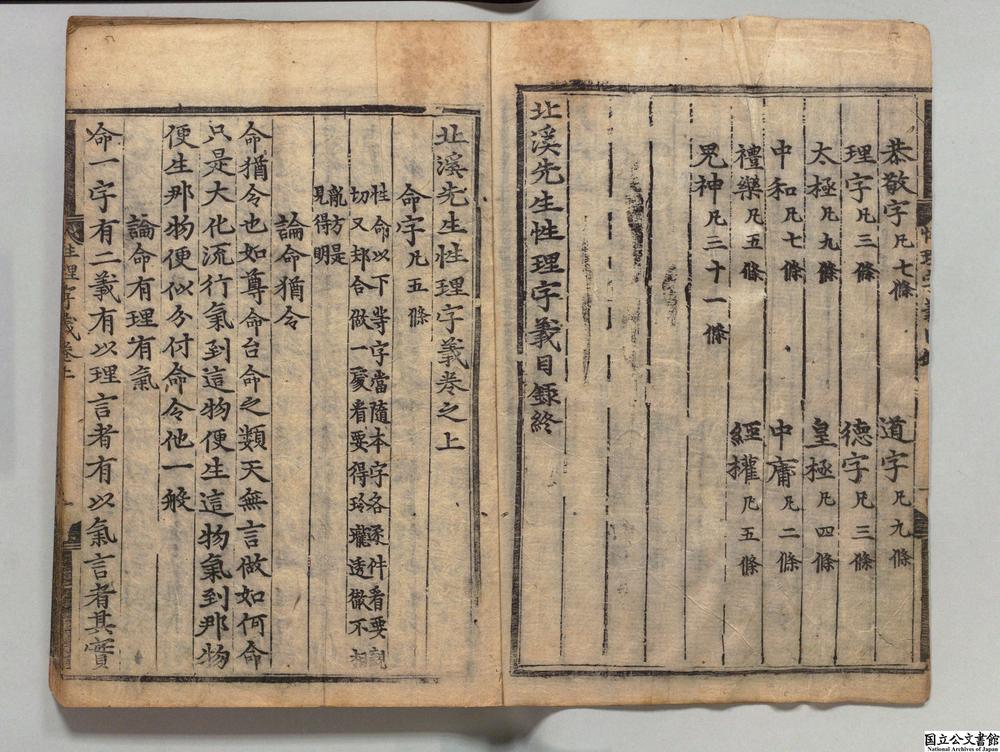 恭敬字凡七條　道字凡九條
理字凡三條　德字凡三條
太極凡九條　皇極凡四條
中和凡七條　中庸凡二條
禮樂凡五條　經權凡五條
鬼神凡三十一條
北溪先生性理字義目録終
北溪先生性理字義卷之上
命字凡五條
性命以下等字當隨本字各逐件看要親
切又却合做一處看要得玲瓏透徹不相
亂方是
見得明
論命猶令
命猶令也如尊命台命之類天無言做如何命
只是大化流行氣到這物便生這物氣到那物
便生那物便似分付命令他一般
論命有理有氣
命一字有二義有以理言者有以氣言者其實
性理字義卷上
国立公文書館
National Archives of Japan